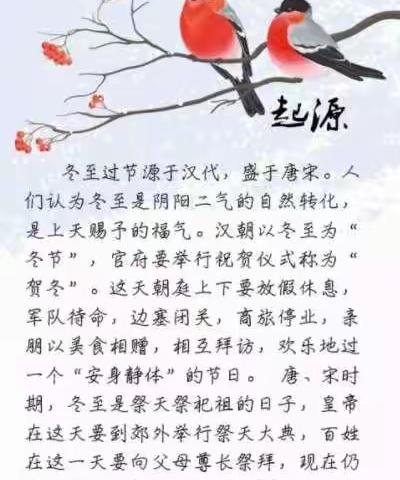 起源
冬至过节源于汉代，盛于唐宋。人
们认为冬至是阴阳二气的自然转化，
是上天赐予的福气。汉朝以冬至为“
冬节”，官府要举行祝贺仪式称为“
贺冬”。这天朝庭上下要放假休息，
军队待命，边塞闭关，商旅停业，亲
朋以美食相赠，相互拜访，欢乐地过
一个“安身静体”的节日。 唐、宋时
期，冬至是祭天祭祀祖的日子，皇帝
在这天要到郊外举行祭天大典，百姓
在这一天要向父母尊长祭拜，现在仍